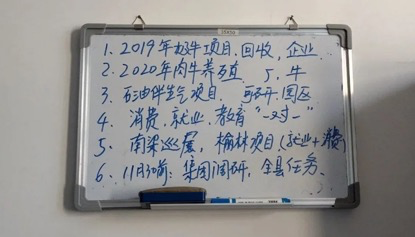 1. 2019年奶牛项目.回收,企业
2. 2020年肉牛养殖 5,牛
3、石油伴生气项目 园区
4、消费、就业、教育“一对一”
5、南梁巡展,榆林项目(就业+消费)
6、11月30前:集团调研,全县任务、